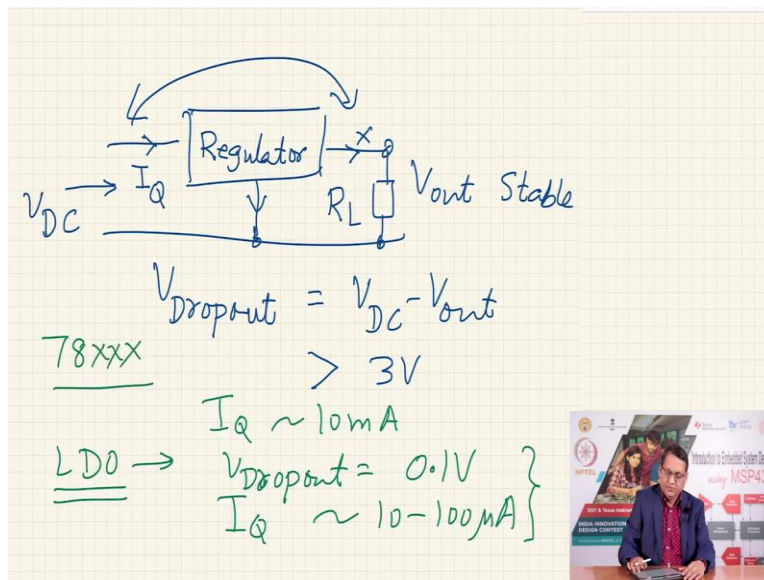 Regulator
X
I_Q
V_DC
R_L
V_out Stable
V_Dropout = V_DC - V_out
78xxx
> 3V
I_Q ~ 10mA
LDO → V_Dropout = 0.1V
I_Q ~ 10-100μA
NPTEL
Introduction to Embedded System De
using MSP43
DST & Texas Instrum
INDIA INNOVATION
DESIGN CONTEST